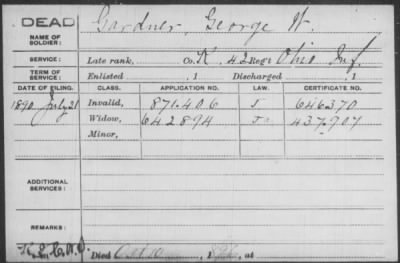 DEAD
NAME OF SOLDIER: Gardner, George W.
SERVICE: Late rank, Co. K, 42 Reg't Ohio Inf.
TERM OF SERVICE: Enlisted , 1 Discharged , 1
DATE OF FILING. CLASS. APPLICATION NO. LAW. CERTIFICATE NO.
1890 July 21 Invalid, 871.406 J 646370
Widow, 642894 437.907
Minor,
ADDITIONAL SERVICES:
REMARKS:
Died Oct 10, 1896, at